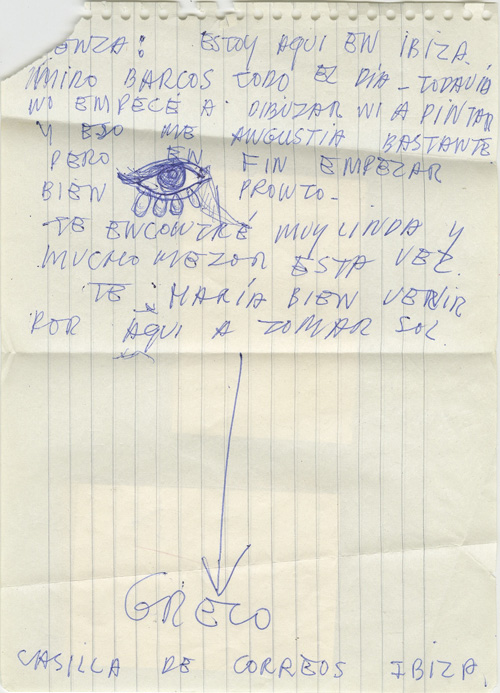 ENZA: ESTOY AQUI EN IBIZA.
MIRO BARCOS TODO EL DÍA - TODAVIA
NO EMPECE A DIBUZAR NI A PINTAR
Y ESO ME ANGUSTIA BASTANTE
PERO EN FIN EMPEZAR
BIEN PRONTO -
TE ENCONTRÉ MUY LINDA Y
MUCHO MEZOR ESTA VEZ.
TE MARÍA BIEN VENIR
POR AQUI A TOMAR SOL.
GRECO
CASILLA DE CORREOS IBIZA.